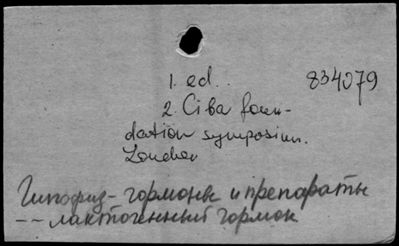 1. ed.. 834079
2. Ciba foun-
dation symposium.
London
Гипофиз - гормоны и препараты
-- лактогенный гормон